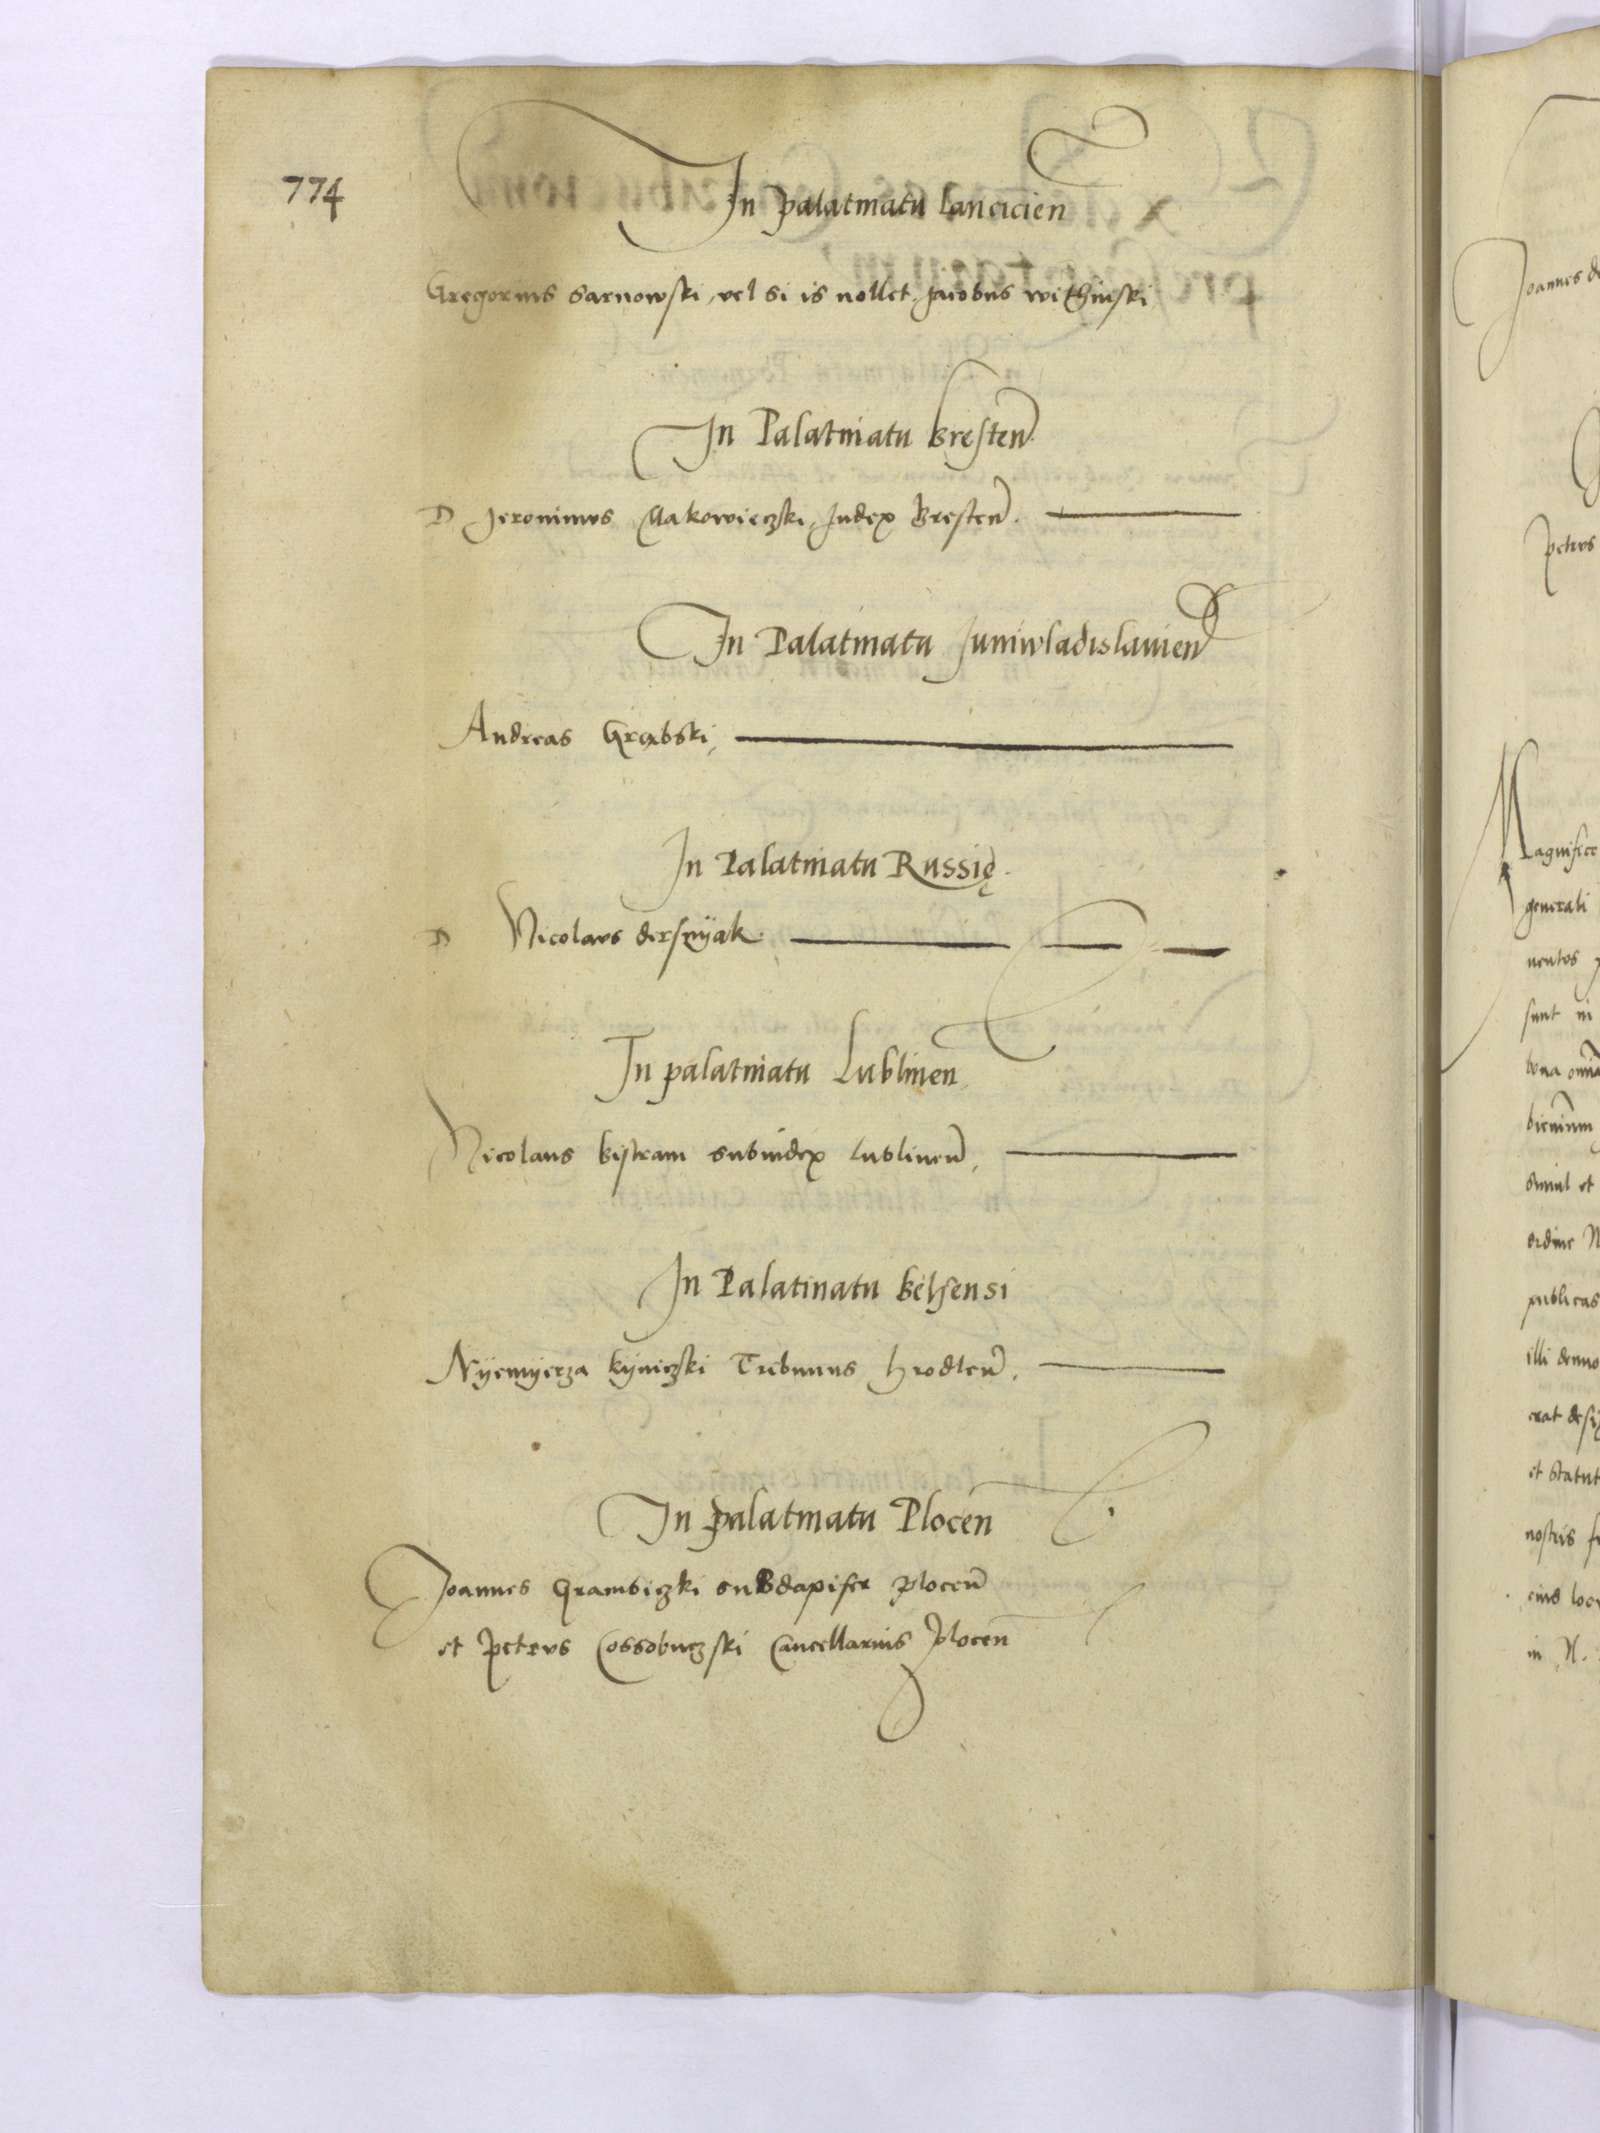 774
In palatinatu Lancicien
Gregorius Sarnowski, vel si is nollet, Jacobus
In Palatinatu Bresten
D Jeronimus Makowieczski, Judex Bresten.
In Palatinatu Juniwladislauien
Andreas Grabski,
In Palatinatu Russię.
D Nicolaus dersznÿak.
In palatinatu Lublinen
Nicolaus bistram subiudex Lublinen,
In Palatinatu belzensi
Nÿemÿerza kÿniczski Tribunus hrodlen.
In palatinatu Plocen
Joannes Grambiczki subdapifer plocen
et petrus Cossobuczski Cancellarius plocen
Joannes
petrus
Magnifico
generali
uentos
sunt in
bona
biennium
simul et
ordine
publicas
illi denuo
erat
et statut
nostris
eius
in N.